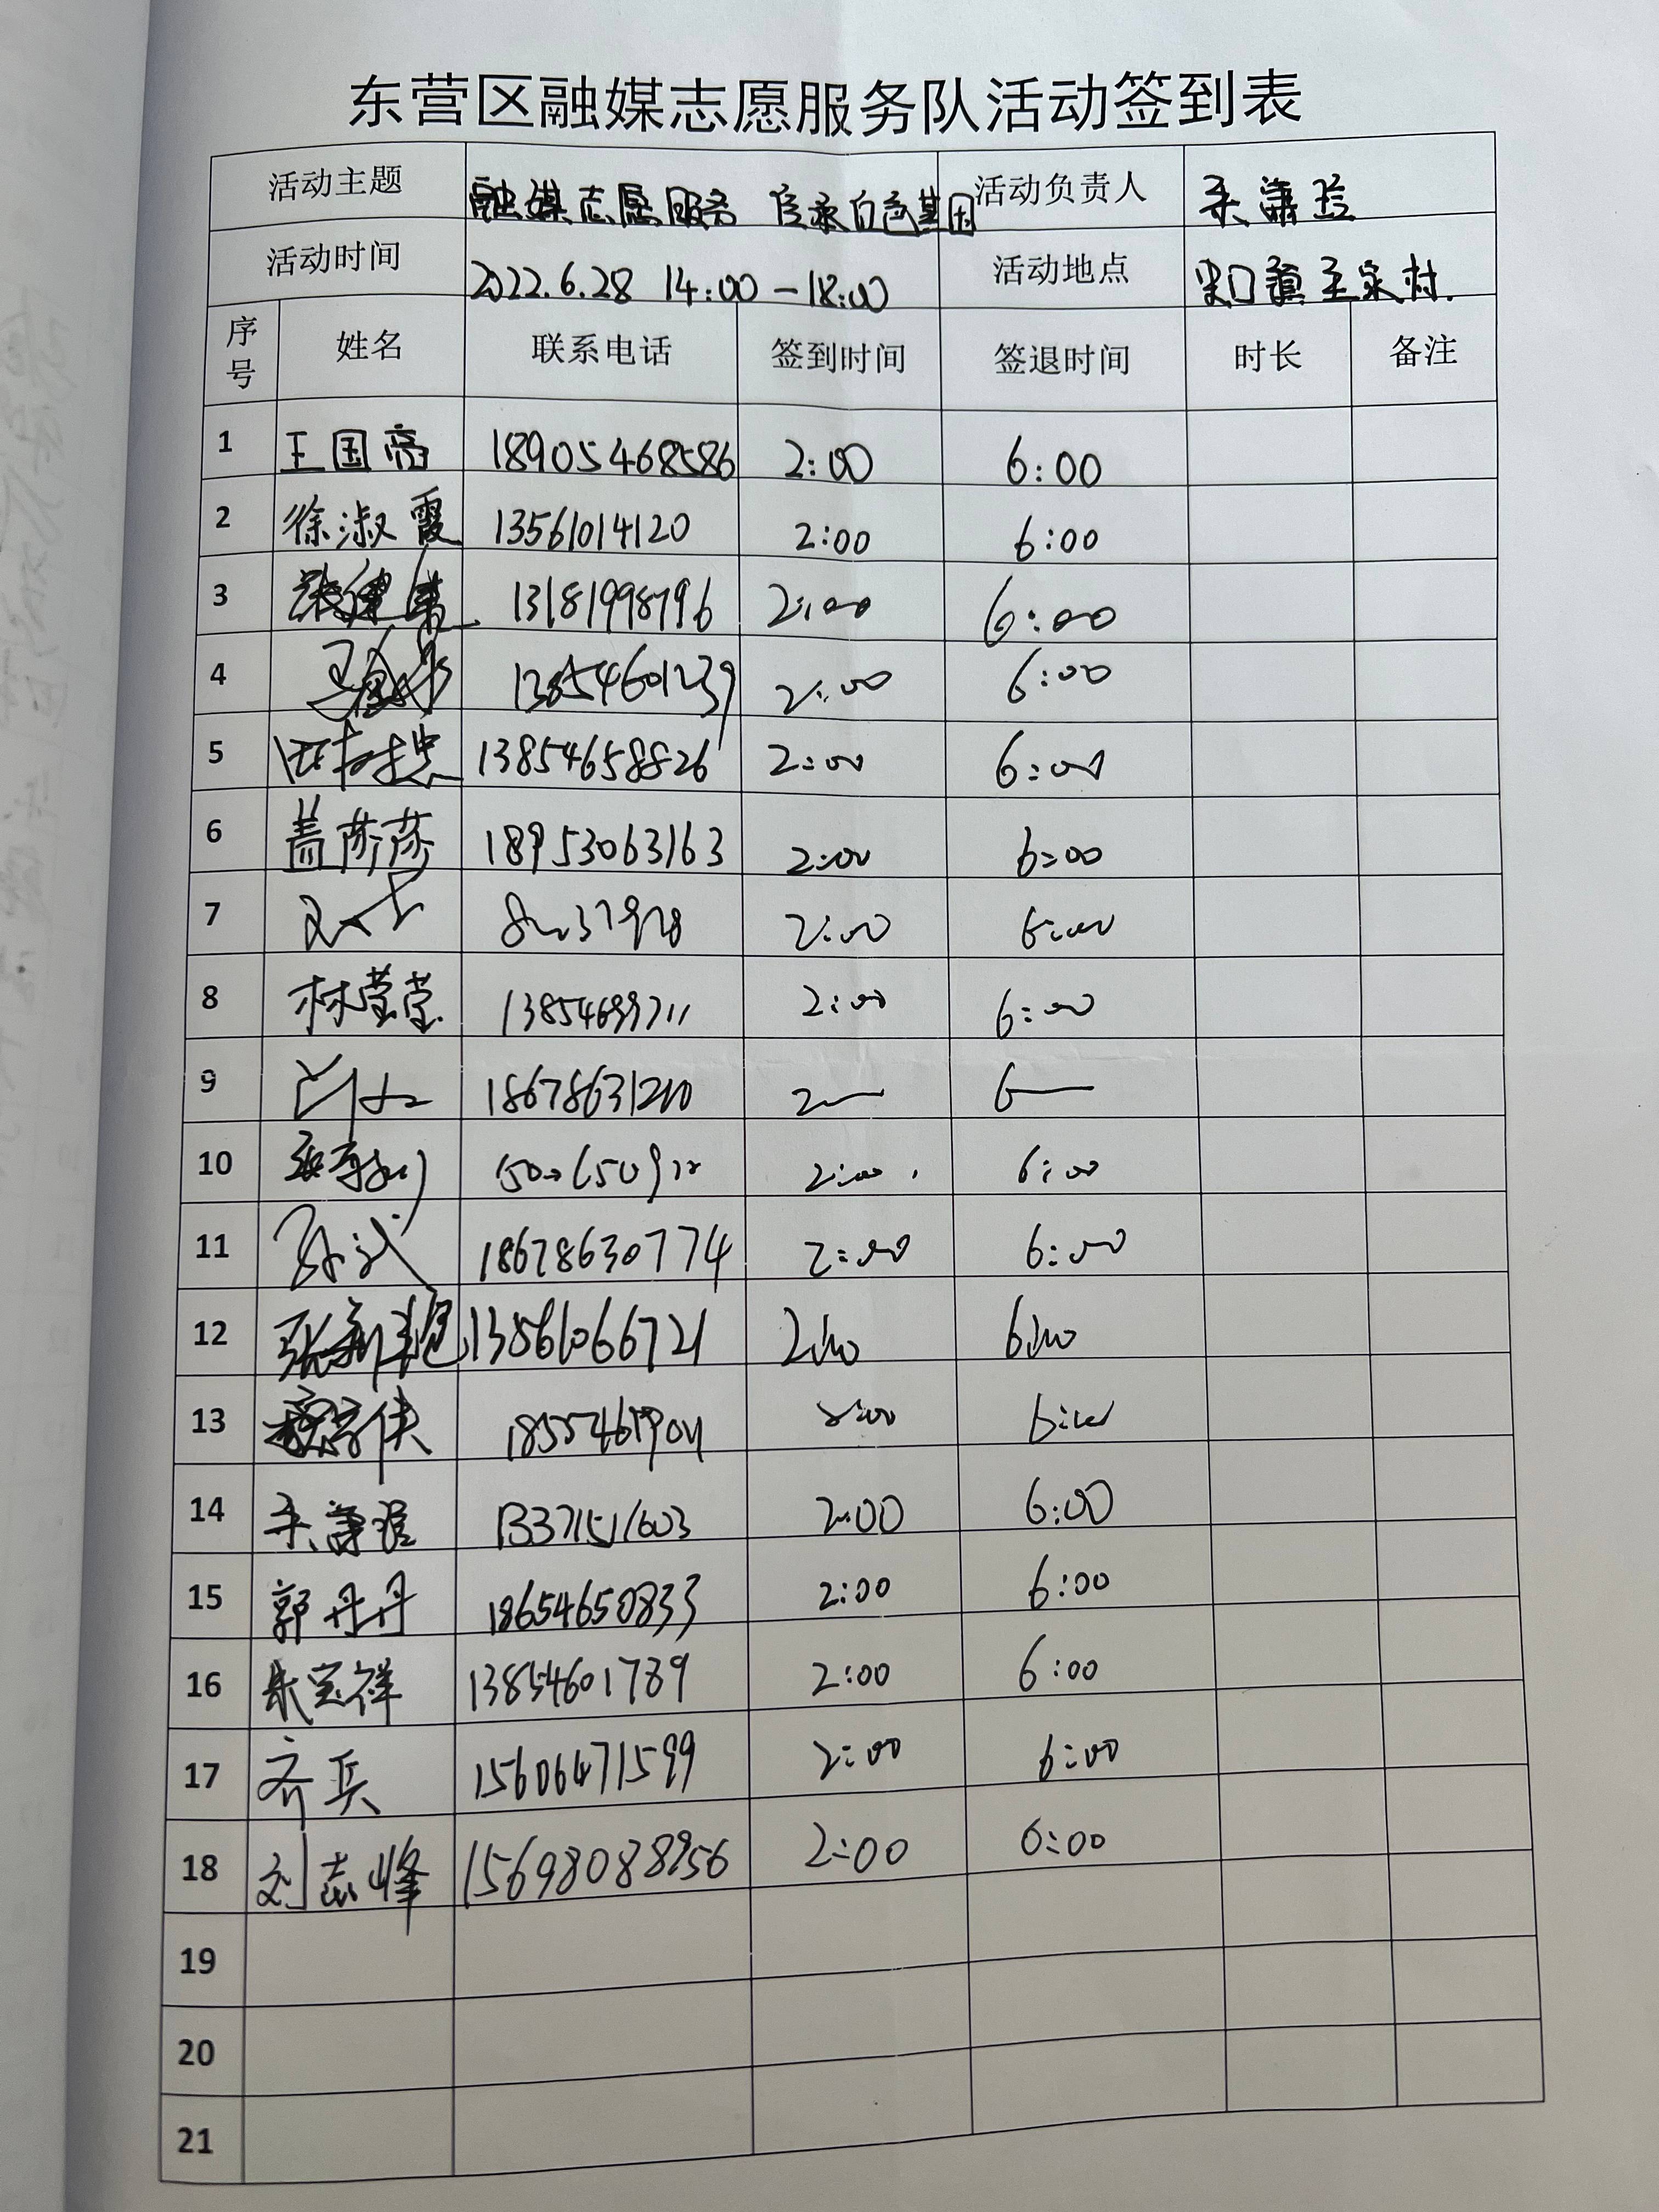 东营区融媒志愿服务队活动签到表
活动主题 融媒志愿服务 传承白色基因 活动负责人
活动时间 2022.6.28 14:00-18:00 活动地点
序号 姓名 联系电话 签到时间 签退时间 时长 备注
1 王国亮 18905468586 2:00 6:00
2 徐淑霞 13561014120 2:00 6:00
3 13181998796 2:00 6:00
4 13854601239 2:00 6:00
5 13854658826 2:00 6:00
6 盖莎莎 18953063163 2:00 6:00
7 2:00 6:00
8 林莹莹 13854699711 2:00 6:00
9 2 6
10 2:00 6:00
11 18678630774 2:00 6:00
12 13861066721 2:00 6:00
13 2:00 6:00
14 13371511603 2:00 6:00
15 郭丹丹 18654650833 2:00 6:00
16 宝祥 13854601789 2:00 6:00
17 齐兵 15606471599 2:00 6:00
18 刘志峰 15698088956 2:00 6:00
19
20
21